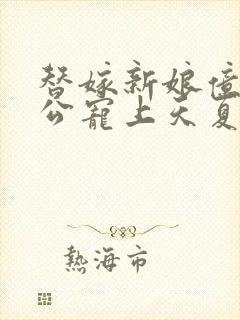 替嫁新娘億
公寵上天夏
熱海市